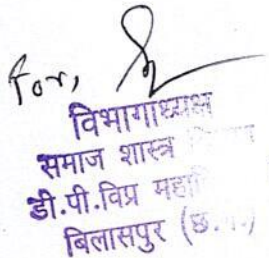 For,
विभागाध्यक्ष
समाज शास्त्र
डी.पी.विप्र महा
बिलासपुर (छ.